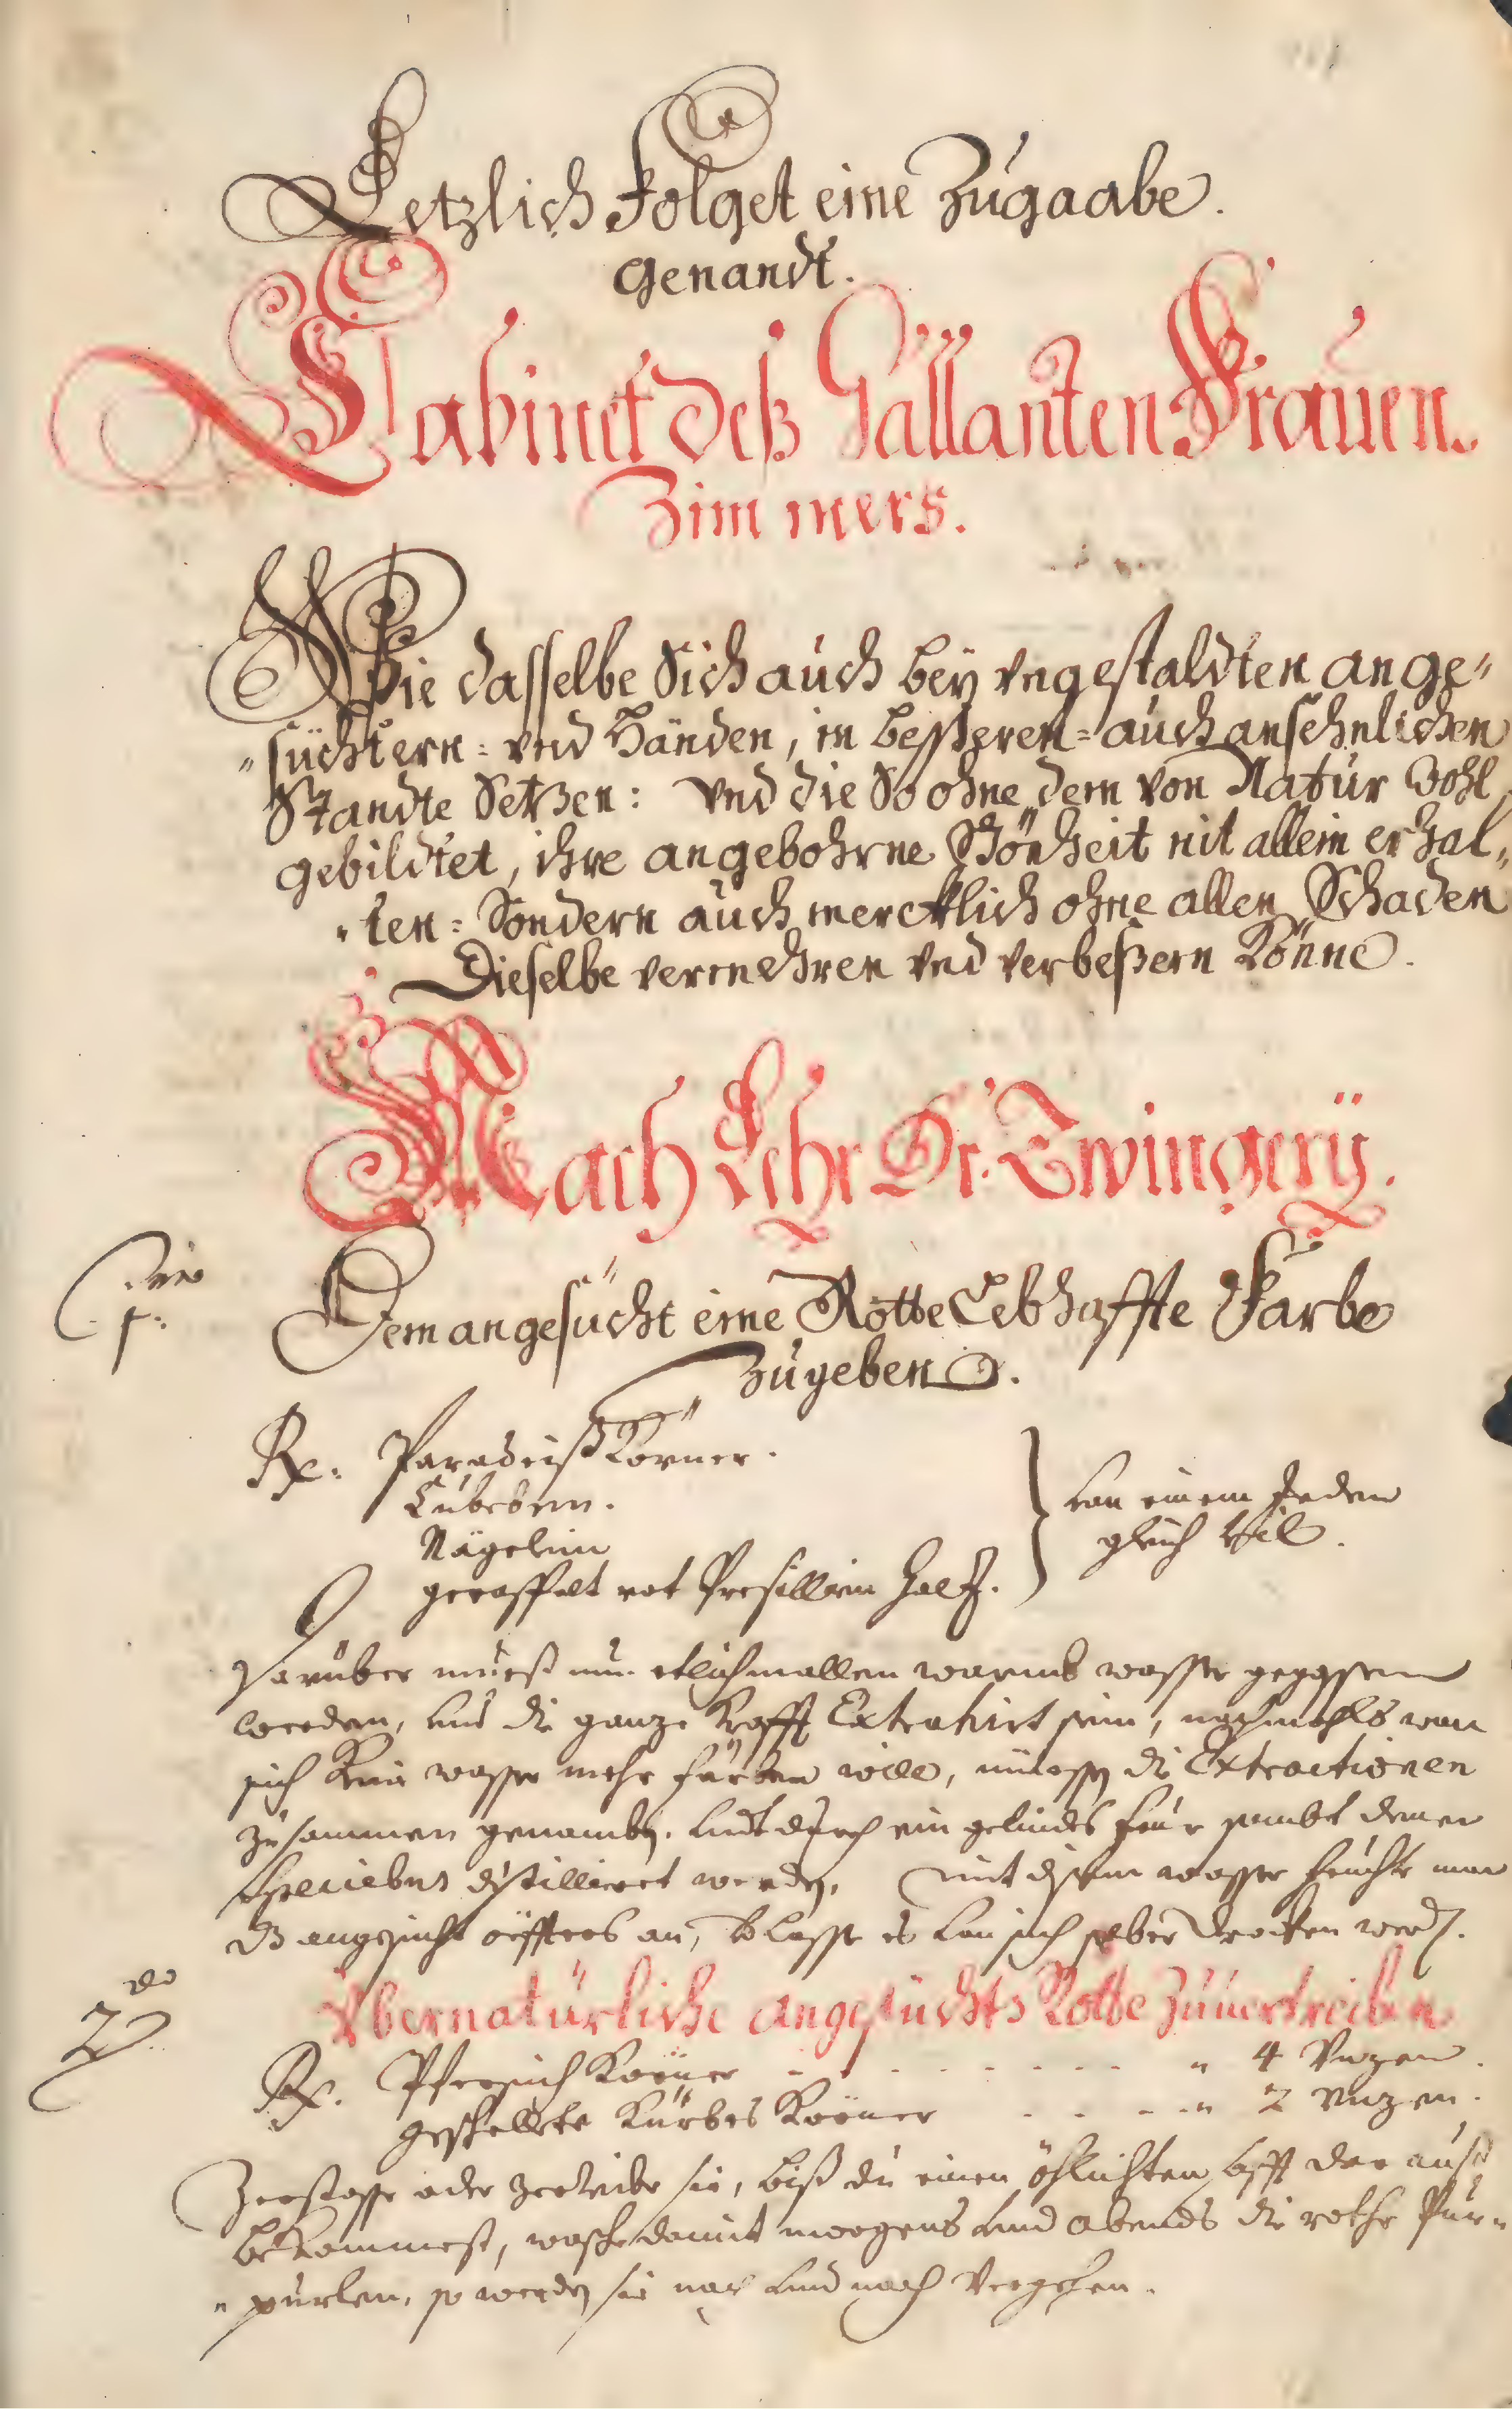 Letzlich Folget eine Zugaabe.
Genandt.
Cabinet deß Gallanten Frauen
Zimmers.
Wie dasselbe Sich auch beÿ vngestaldten ange„
„süchtern: vnd Händen, in beßeren= auch ansehnlichen
Standte Setzen: vnd die So ohne dem von Natur Wohl
gebildtet, ihre angebohrne Schönheit nit allein erhal„
„ten= Sondern auch mercklich ohne allen Schaden
Dieselbe vermehren vnd verbeßern Könne.
Nach Lehr Dr. Zwingerÿ.
1.
Dem angesücht eine Rotte Lebhaffte Farbe
zugeben.
Rx. Paradeiß Körner.
Cubeben.
Nägelein
geraffelt rot Presillien Holz.
von einem Jeden
gleich Vil.
Darüber mueß nun etlichmallen warmbs wasser gegossen
werden, bis die ganze Krafft Extrahirt seie, nachmahls wan
sich Kein wasser mehr färben will, müessen die Extractionen
zusammen genomben. vnd durch ein gelindes feur sambt denen
Speciebus distilliert werden, mit disem wasser feuchte man
dz angesicht öffters an, v lasse es von sich selber drocken werden.
Vbernatürliche angesüchts Rotte zuuertreiben
2do
Rx. Pfersich Körner - - - - - - - „ 4 Vnzen.
geschelte Kürbes Körner - - - - „ 2 Vnzen.
Zerstosse oder zerreibe sie, biß du einen öhlichten safft dar auß
bekommest, wasche damit morgens vnd abends die rothe Pur„
„purlen, so werden sie nach vnd nach Vergehen.